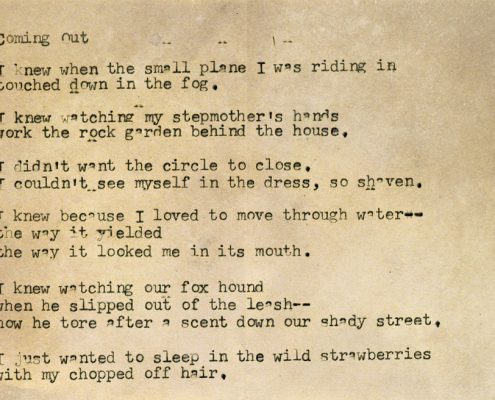 Coming out
I knew when the small plane I was riding in
touched down in the fog.
I knew watching my stepmother's hands
work the rock garden behind the house.
I didn't want the circle to close.
I couldn't see myself in the dress, so shaven.
I knew because I loved to move through water--
the way it yielded
the way it looked me in its mouth.
I knew watching our fox hound
when he slipped out of the leash--
how he tore after a scent down our shady street.
I just wanted to sleep in the wild strawberries
with my chopped off hair.